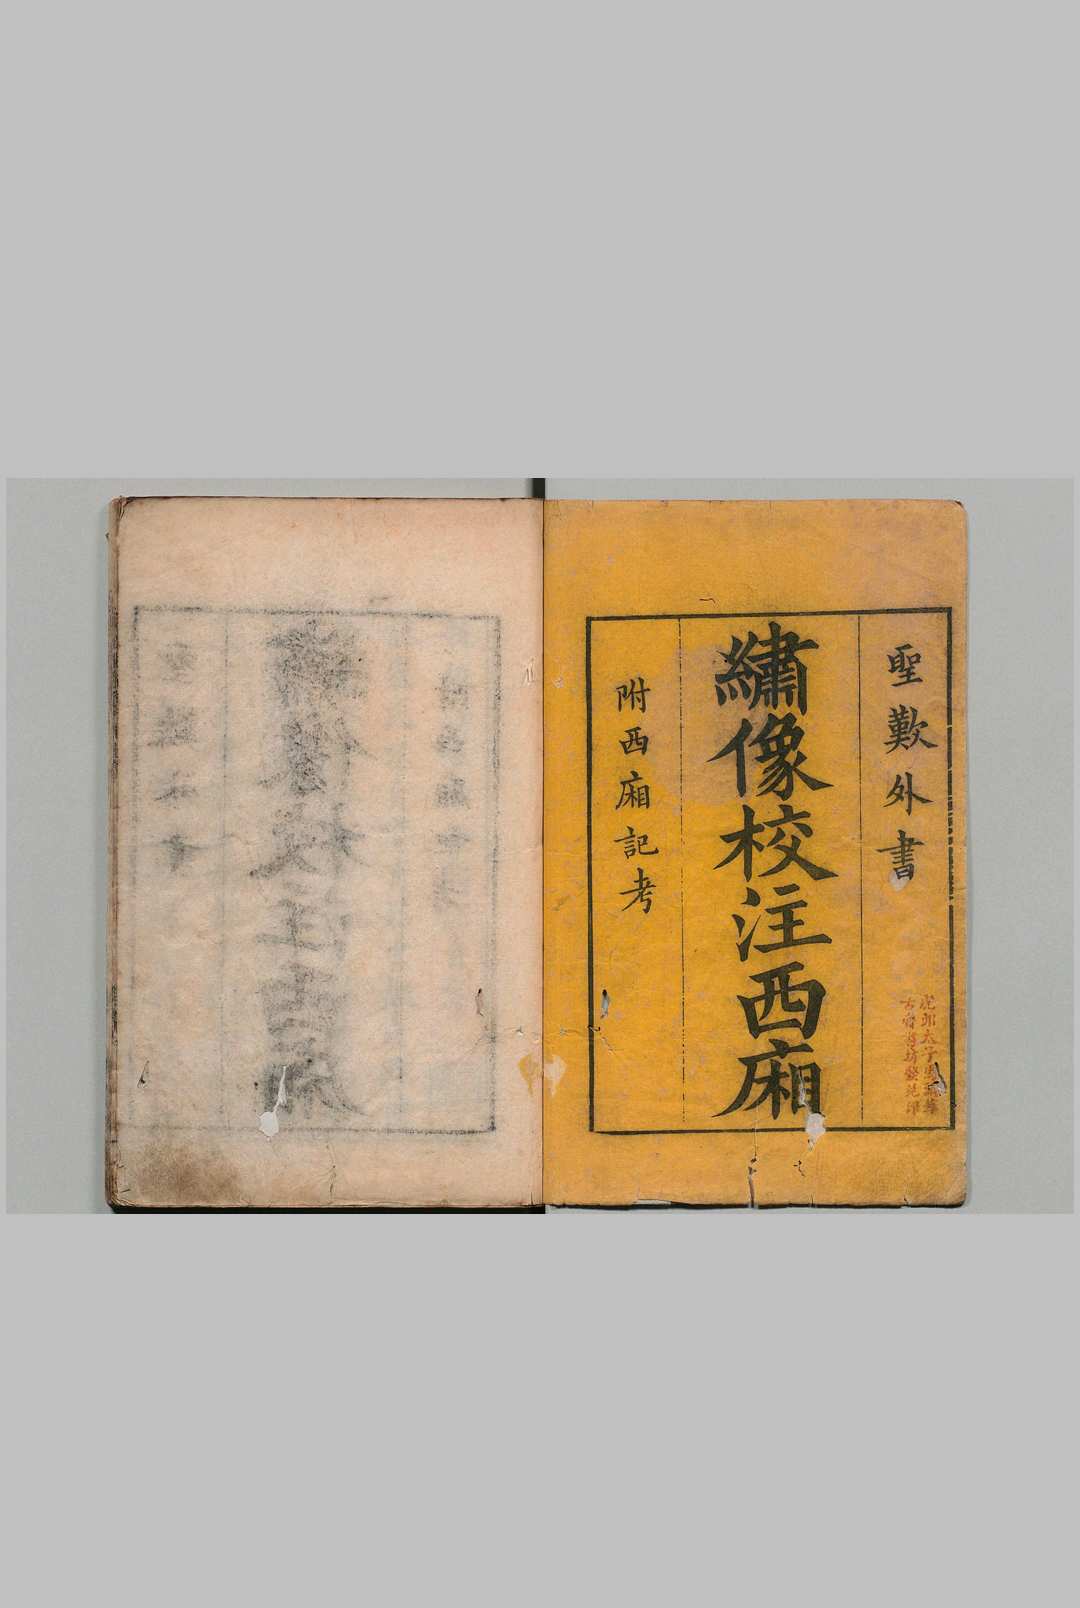 聖歎外書
繡像校注西廂
附西廂記考